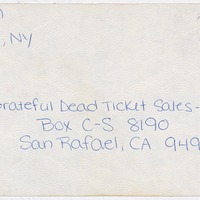 , NY
Grateful Dead Ticket Sales-
Box C-S 8190
San Rafael, CA 949